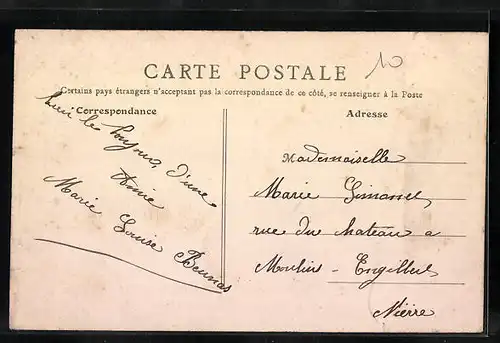 10
CARTE POSTALE
Certains pays étrangers n'acceptant pas la correspondance de ce côté, se renseigner à la Poste
Correspondance
le bonjour, d'une
Amie
Marie Louise
Adresse
Mademoiselle
Marie Simonnet
rue du chateau a
Moulins - Engilbert
Nièvre